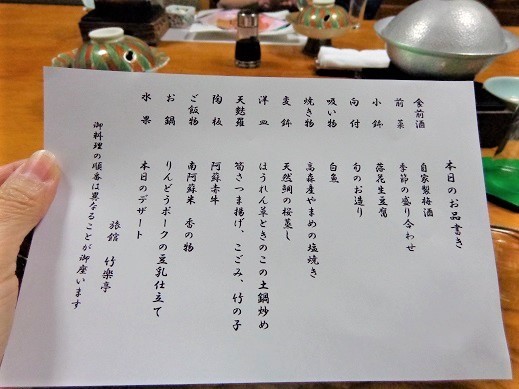 本日のお品書き
食前酒 自家製梅酒
前菜 季節の盛り合わせ
小鉢 落花生豆腐
向付 旬のお造り
吸い物 白魚
焼き物 高森産やまめの塩焼き
変鉢 天然鯛の桜蒸し
洋皿 ほうれん草ときのこの土鍋炒め
天麩羅 筍さつま揚げ、こごみ、竹の子
陶板 阿蘇赤牛
ご飯物 南阿蘇米 香の物
お鍋 りんどうポークの豆乳仕立て
水菓 本日のデザート
旅館 竹楽亭
御料理の順番は異なることが御座います